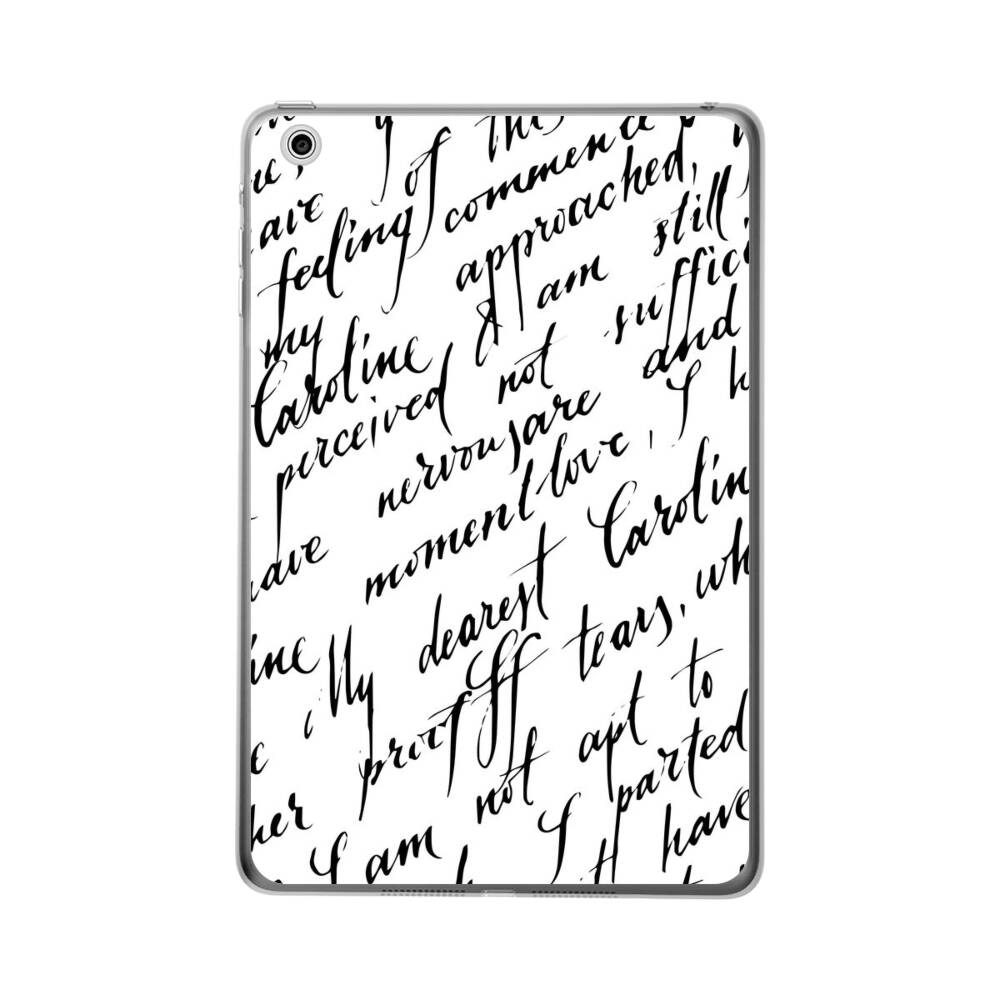 of this
ave feeling commence
my approached,
Caroline I am still,
perceived not suffici
nervous are and
ave moment love, I h
dearest Carolin
ine, My tears, wh
her proof not apt to
I am I parted
have